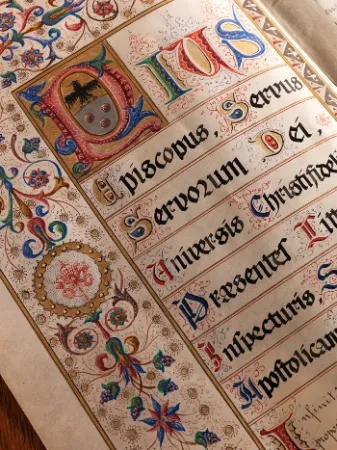 Pius
Episcopus, Servus
Servorum Dei,
Universis Christifidel
Præsentes Litt
Inspecturis, S
Apostolicam